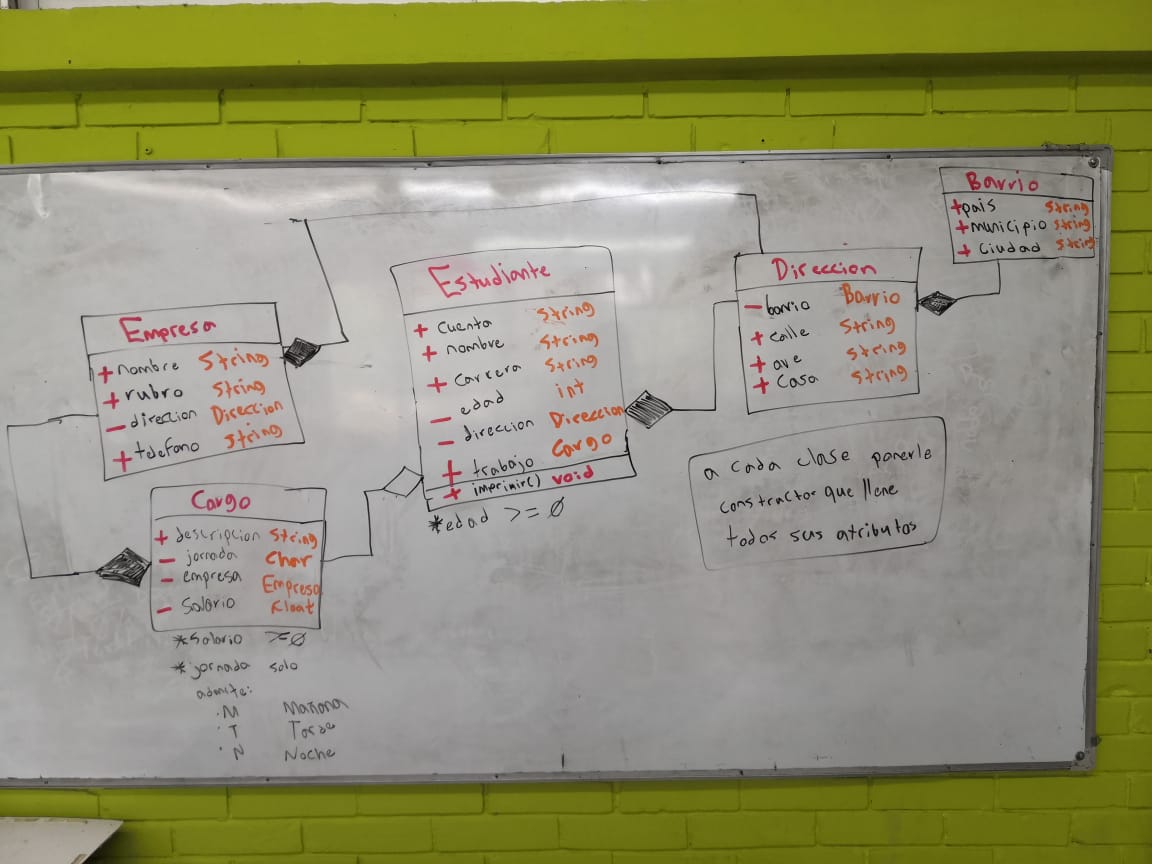 Empresa
+ nombre String
+ rubro String
- direccion Direccion
+ telefono String
Cargo
+ descripcion String
- jornada Char
- empresa Empresa
- Salario Float
*Salario >=0
* jornada solo
admite:
. M Mañana
. T Tarde
. N Noche
Estudiante
+ Cuenta String
+ nombre String
+ Carrera String
- edad int
- direccion Direccion
+ trabajo Cargo
+ imprimir() void
*edad >= 0
Direccion
- barrio Barrio
+ calle String
+ ave String
+ Casa String
Barrio
+pais String
+municipio String
+ Ciudad String
a cada clase ponerle
constructor que llene
todos sus atributos